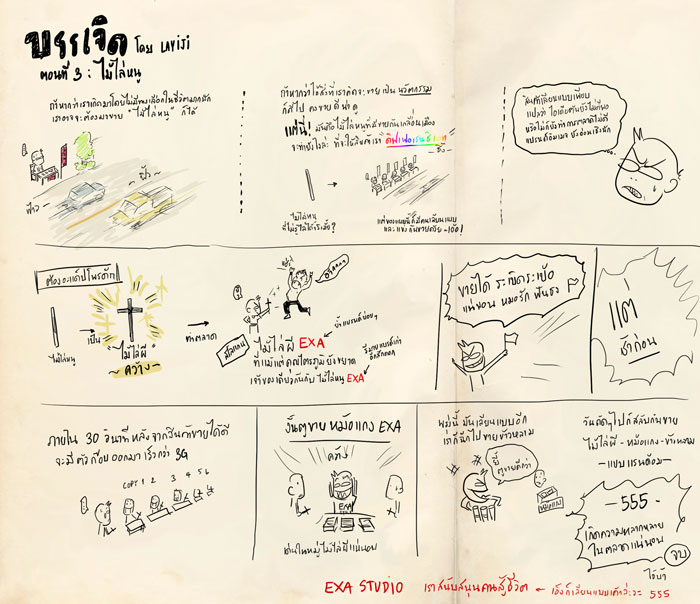 บรรเจิด โดย LAVIJI
ตอนที่ 3 : ไม้ไล่หนู
ถ้าหากว่าเราเกิดมาโดยไม่มีทางเลือกในชีวิตมากนัก
เราอาจจะต้องมาขาย "ไม้ไล่หนู" ก็ได้
ฟ้าว
ฟ้าว
ถ้าหากว่าไอ้สิ่งที่เราคิดจะขายเป็น นวัตกรรม
ก็ดีไป คงขายดีน่าดู
แต่นี่! มันคือไม้ไล่หนูที่มีขายกันเกลื่อนเมือง
จะทำยังไงล่ะ ที่จะให้สินค้าเรา ดิฟเฟอเรนซิเอต
ไม้ไล่หนู
แต่ของแบบนี้ก็มีคนเลียนแบบ
และแข่งกันขายตั้งเยอะ - 100!
สินค้าเลียนแบบเพียบ
แปลว่า ไอเดียคุณยังไม่ดีพอ
หรือไม่ก็ยังทำการตลาดไม่ดี
แบรนด์อิมเมจ ยังอ่อนเชิงนัก
ต้องอะแด๊ปโพรดักท์
ไม้ไล่หนู
เป็น
"ไม้ไล่ผี"
~ คว้าง ~
ทำตลาด
สโลแกน
ไม้ไล่ผี EXA
ย้ำแบรนด์บ่อยๆ
ที่แม้แต่คุณไตรภูมิยังขยาด
เจ้าของเดียวกันกับ ไม้ไล่หนู EXA
ขายได้ ระเบิดระเบ้อ
แน่นอน หมอรัก ฟันธง
แต่
ช้าก่อน
ภายใน 30 วินาที หลังจากสินค้าขายได้ดี
จะมีตัวก๊อปออกมา เร็วกว่า 3G
COPY 1 2 3 4 5 6
งั้นตูขาย หม้อแกง EXA
EXA
เด่นในหมู่ไม้ไล่ผีแน่นอน
พรุ่งนี้ มันเลียนแบบอีก
เราก็ฉีกไปขายข้าวหลาม
หม้อแกง
วันถัดๆไปก็สลับกันขาย
ไม้ไล่ผี - หม้อแกง - ข้าวหลาม
— แบบแรนด้อม —
- 555 -
เกิดความหลากหลาย
ในตลาดแน่นอน
จบ
ไอ้บ้า
EXA STUDIO เราสนับสนุนคนสู้ชีวิต